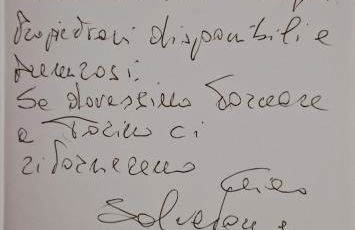 Propietari disponibili e
premurosi.
Se dovessimo tornare
a Torino ci
ritorneremo
Ciao
Salvatore